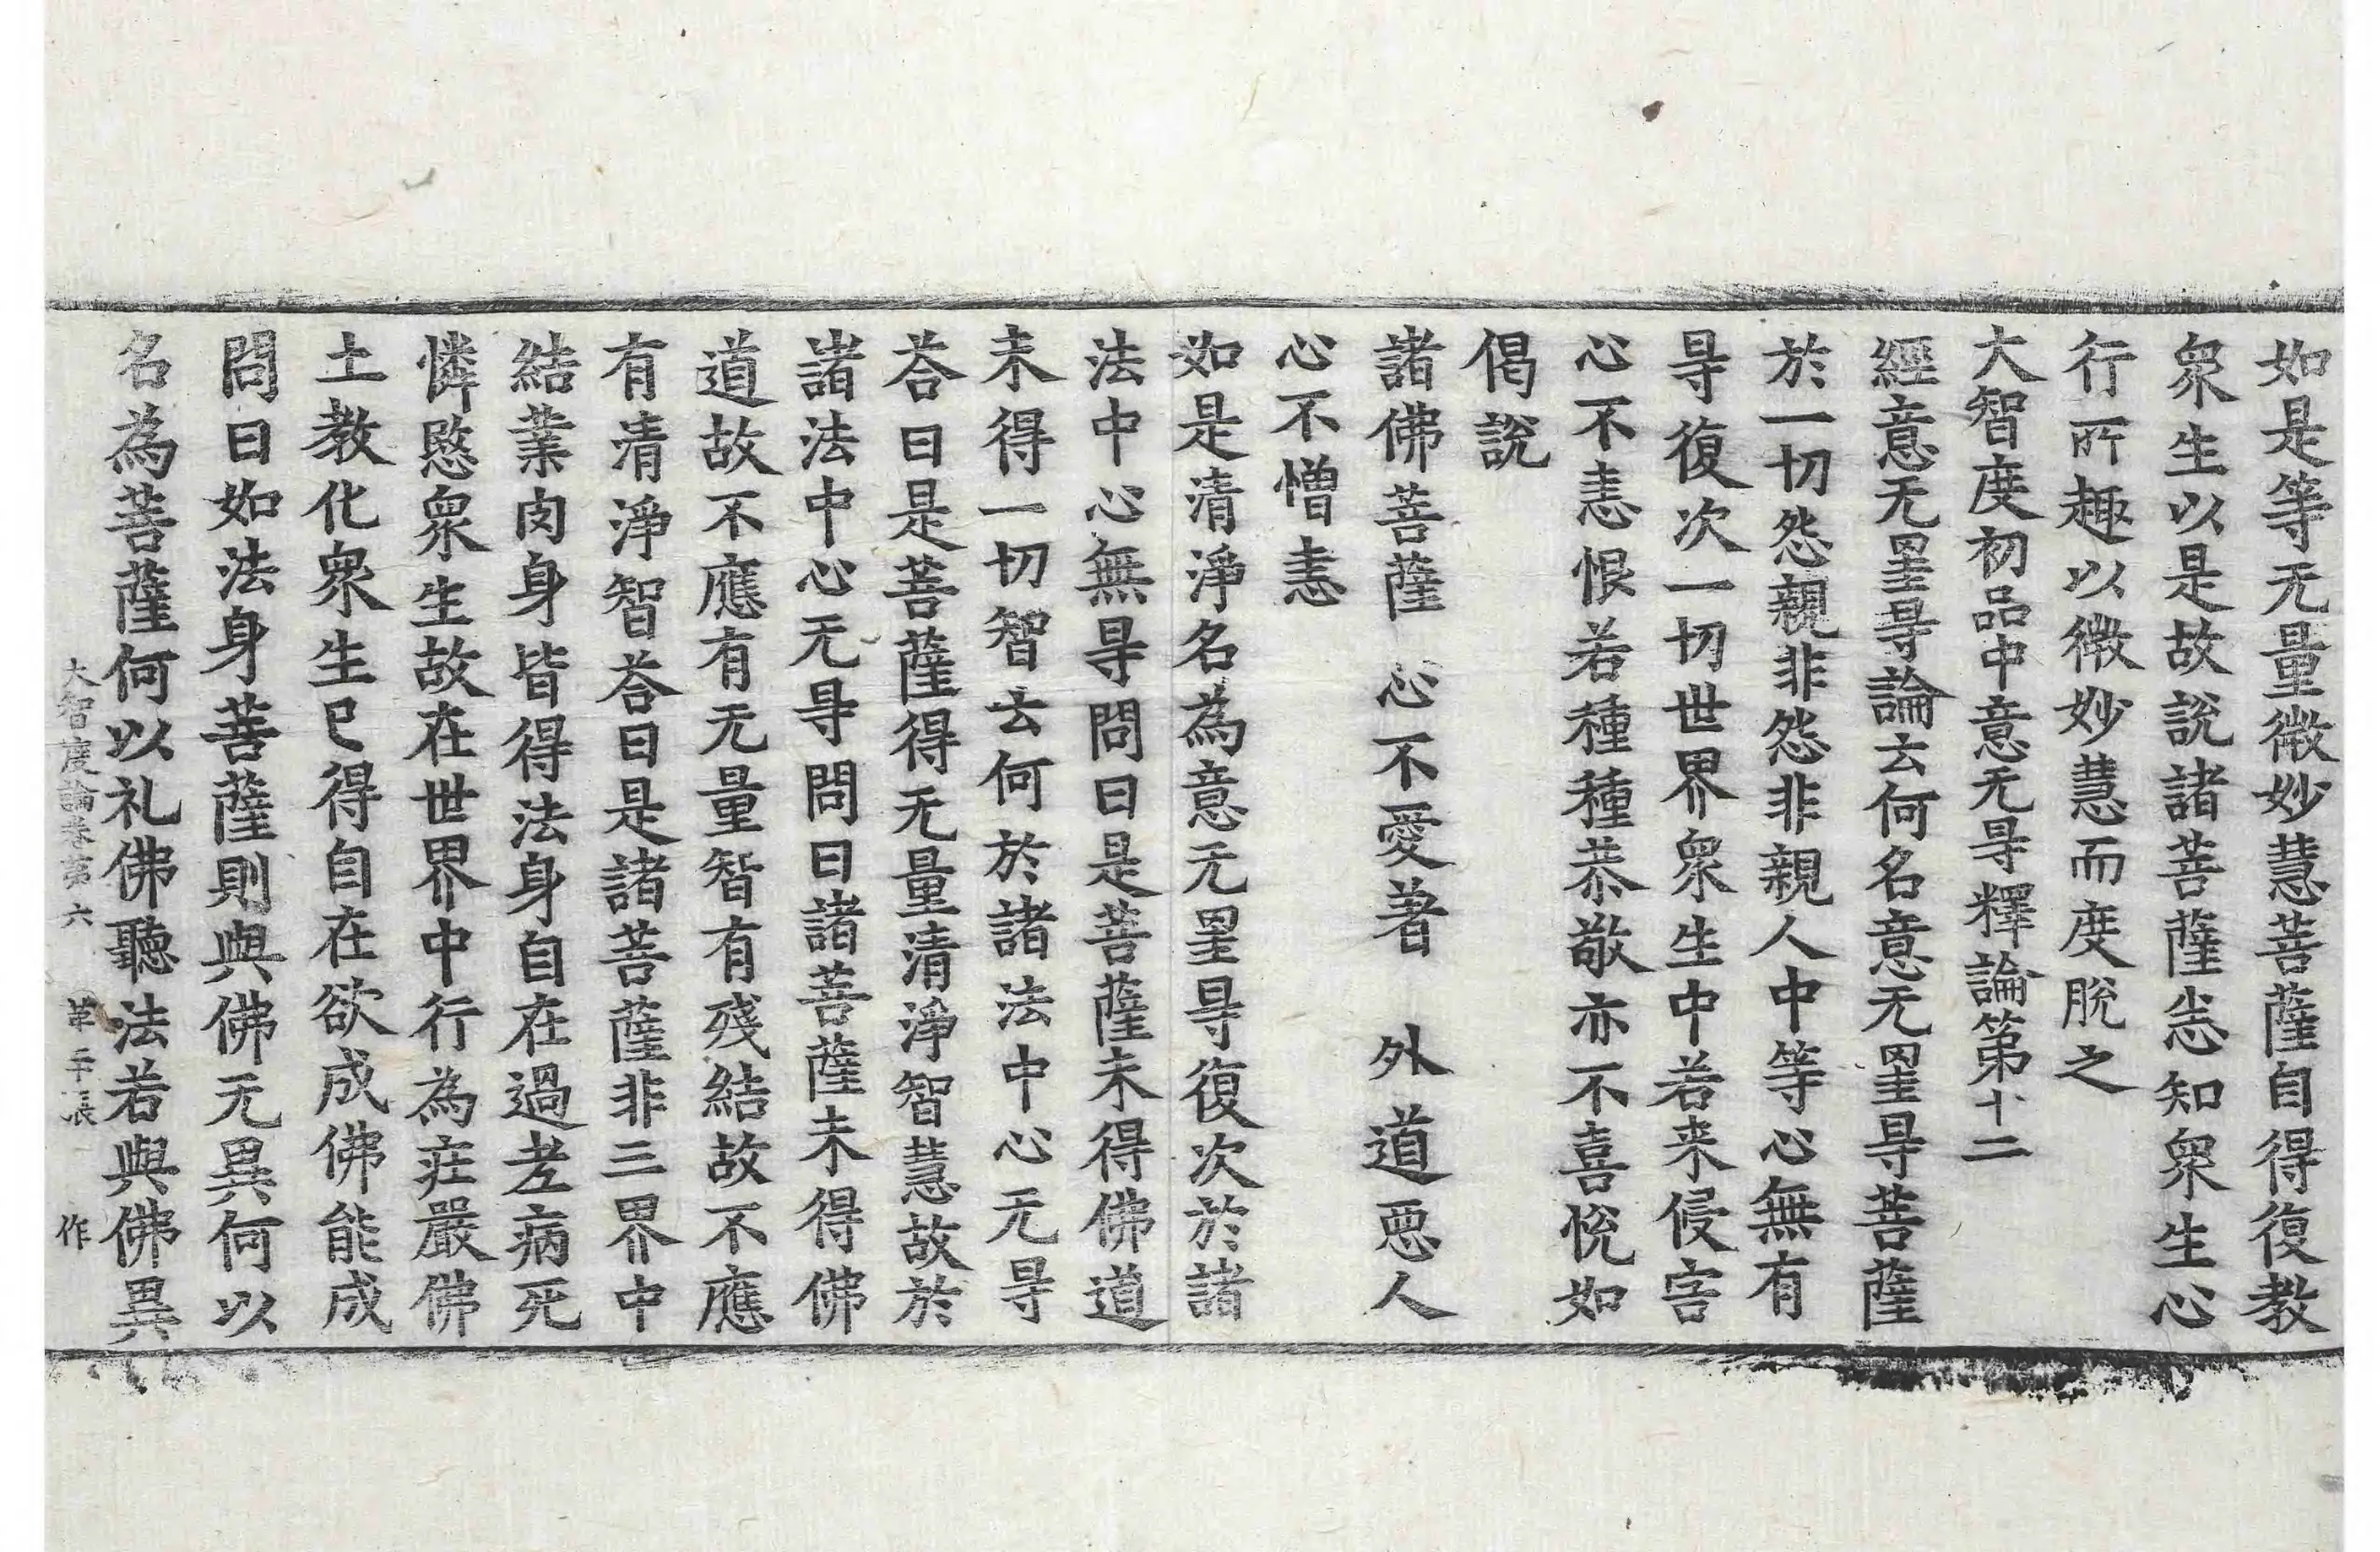 如是等无量微妙慧菩薩自得復教
衆生以是故說諸菩薩悉知衆生心
行所趣以微妙慧而度脫之
大智度初品中意无㝵釋論第十二
經意无罣㝵論云何名意无罣㝵菩薩
於一切怨親非怨非親人中等心無有
㝵復次一切世界衆生中若来侵害
心不恚恨若種種恭敬亦不喜悅如
偈說
諸佛菩薩　心不愛著　外道惡人
心不憎恚
如是清淨名為意无罣㝵復次於諸
法中心無㝵問曰是菩薩未得佛道
未得一切智云何於諸法中心无㝵
荅曰是菩薩得无量清淨智慧故於
諸法中心无㝵問曰諸菩薩未得佛
道故不應有无量智有殘結故不應
有清淨智荅曰是諸菩薩非三界中
結業肉身皆得法身自在過老病死
憐愍衆生故在世界中行為莊嚴佛
土教化衆生已得自在欲成佛能成
問曰如法身菩薩則與佛无異何以
名為菩薩何以礼佛聽法若與佛異
大智度論卷第六　第二十張　作